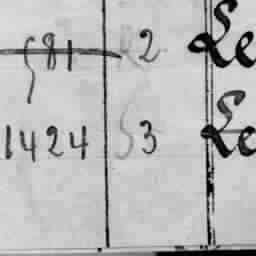 581 2 Le
1424 53 Le